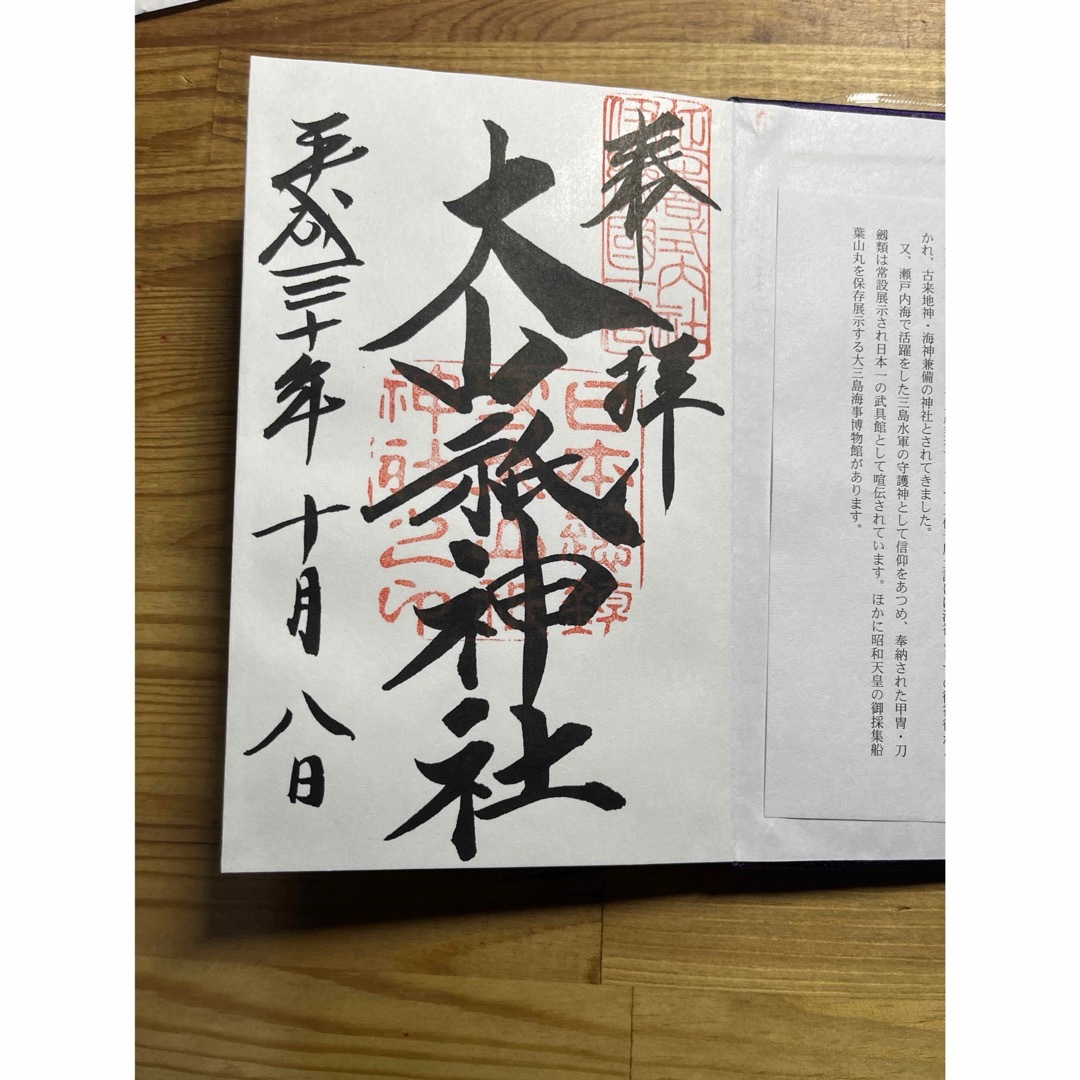 かれ、古来地神・海神兼備の神社とされてきました。
又、瀬戸内海で活躍をした三島水軍の守護神として信仰をあつめ、奉納された甲冑・刀
剱類は常設展示され日本一の武具館として喧伝されています。ほかに昭和天皇の御採集船
葉山丸を保存展示する大三島海事博物館があります。
奉拝
大山祇神社
平成三十年 十月 八日
日本総鎮
神社之印
式内社